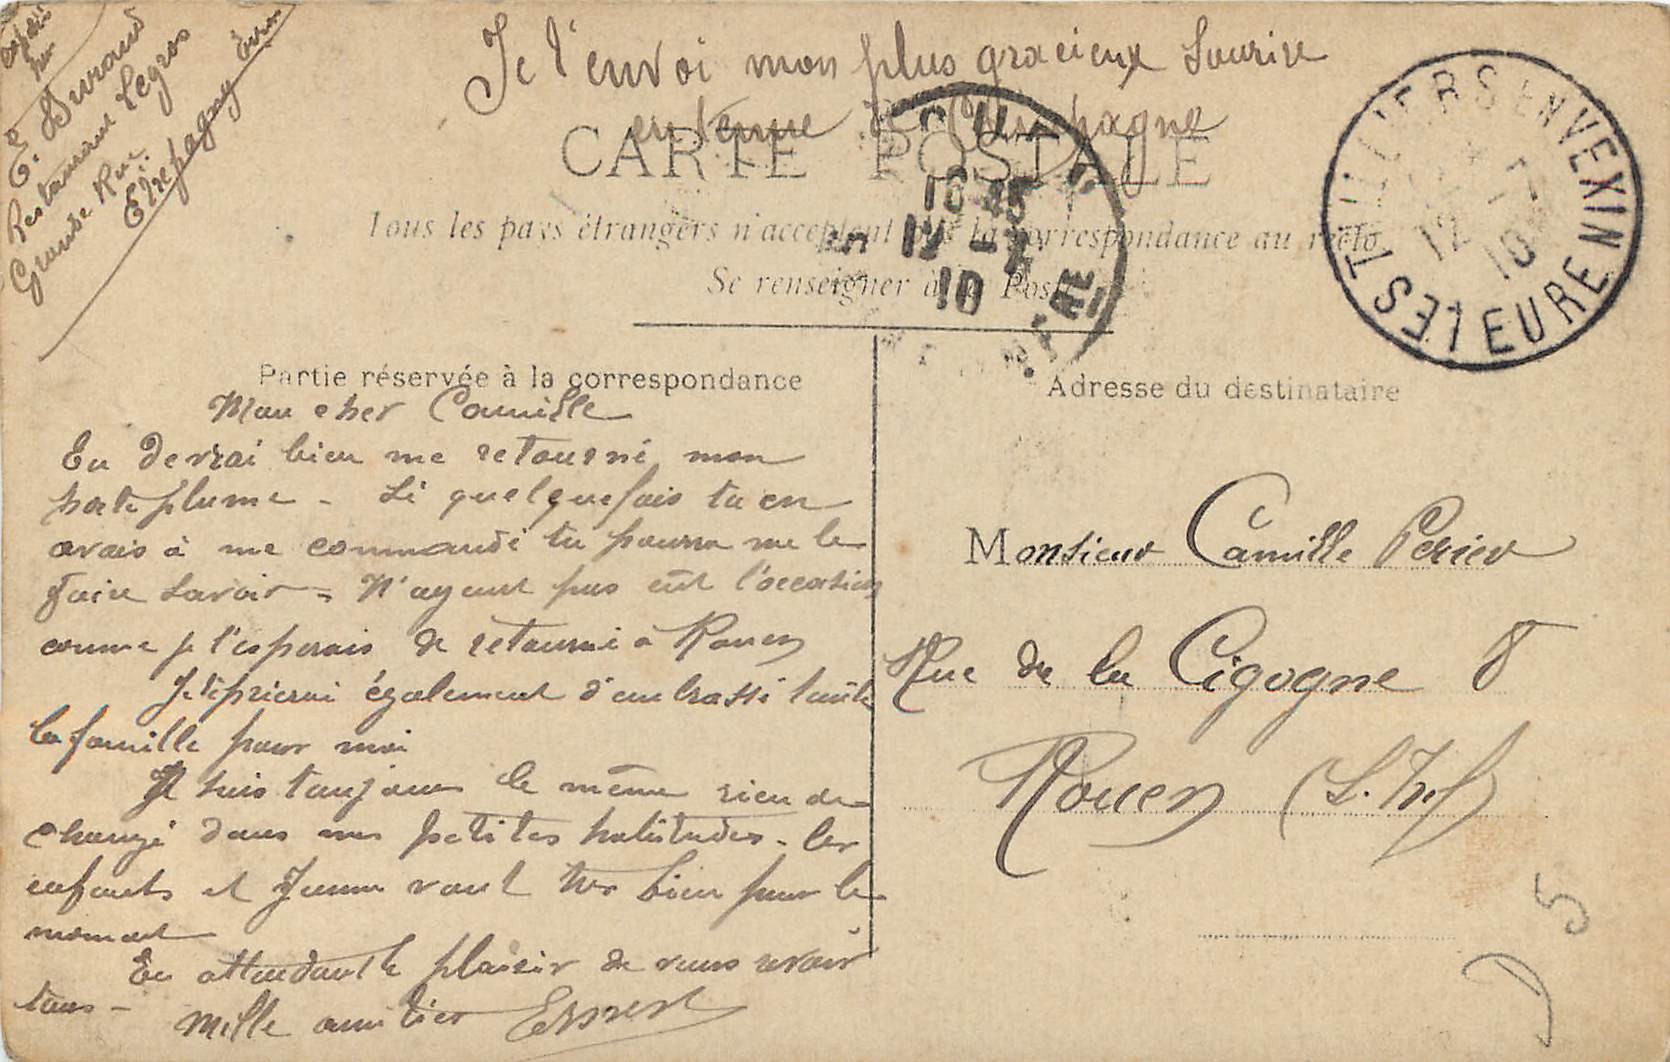 expédié
par
E. Durand
Restaurant Legros
Grande Rue
Etrepagny Eure
Je t'envoi mon plus gracieux Sourire
en tenue de Campagne
CARTE POSTALE
Tous les pays étrangers n'acceptent pas la correspondance au recto
Se renseigner à la Poste
16 45
12 - 7
10
LES THILLIERS EN VEXIN EURE
12 - 7
10
Partie réservée à la correspondance
Adresse du destinataire
Mon cher Camille
Tu devrai bien me retourné mon
porte plume - Si quelquefois tu en
avais à me commandé tu pourra me le
faire savoir - N'ayant pas eût l'occasion
comme je l'esperais de retourné à Rouen
Je t'prierai également d'embrassé toute
la famille pour moi
Je suis toujours le même rien de
changé dans mes petites habitudes - les
enfants et Jeanne vont très bien pour le
moment
En attendant le plaisir de vous revoir
tous -
Mille amitiés Ernest
Monsieur Camille Perier
Rue de la Cigogne 8
Rouen (S. Inf)
5